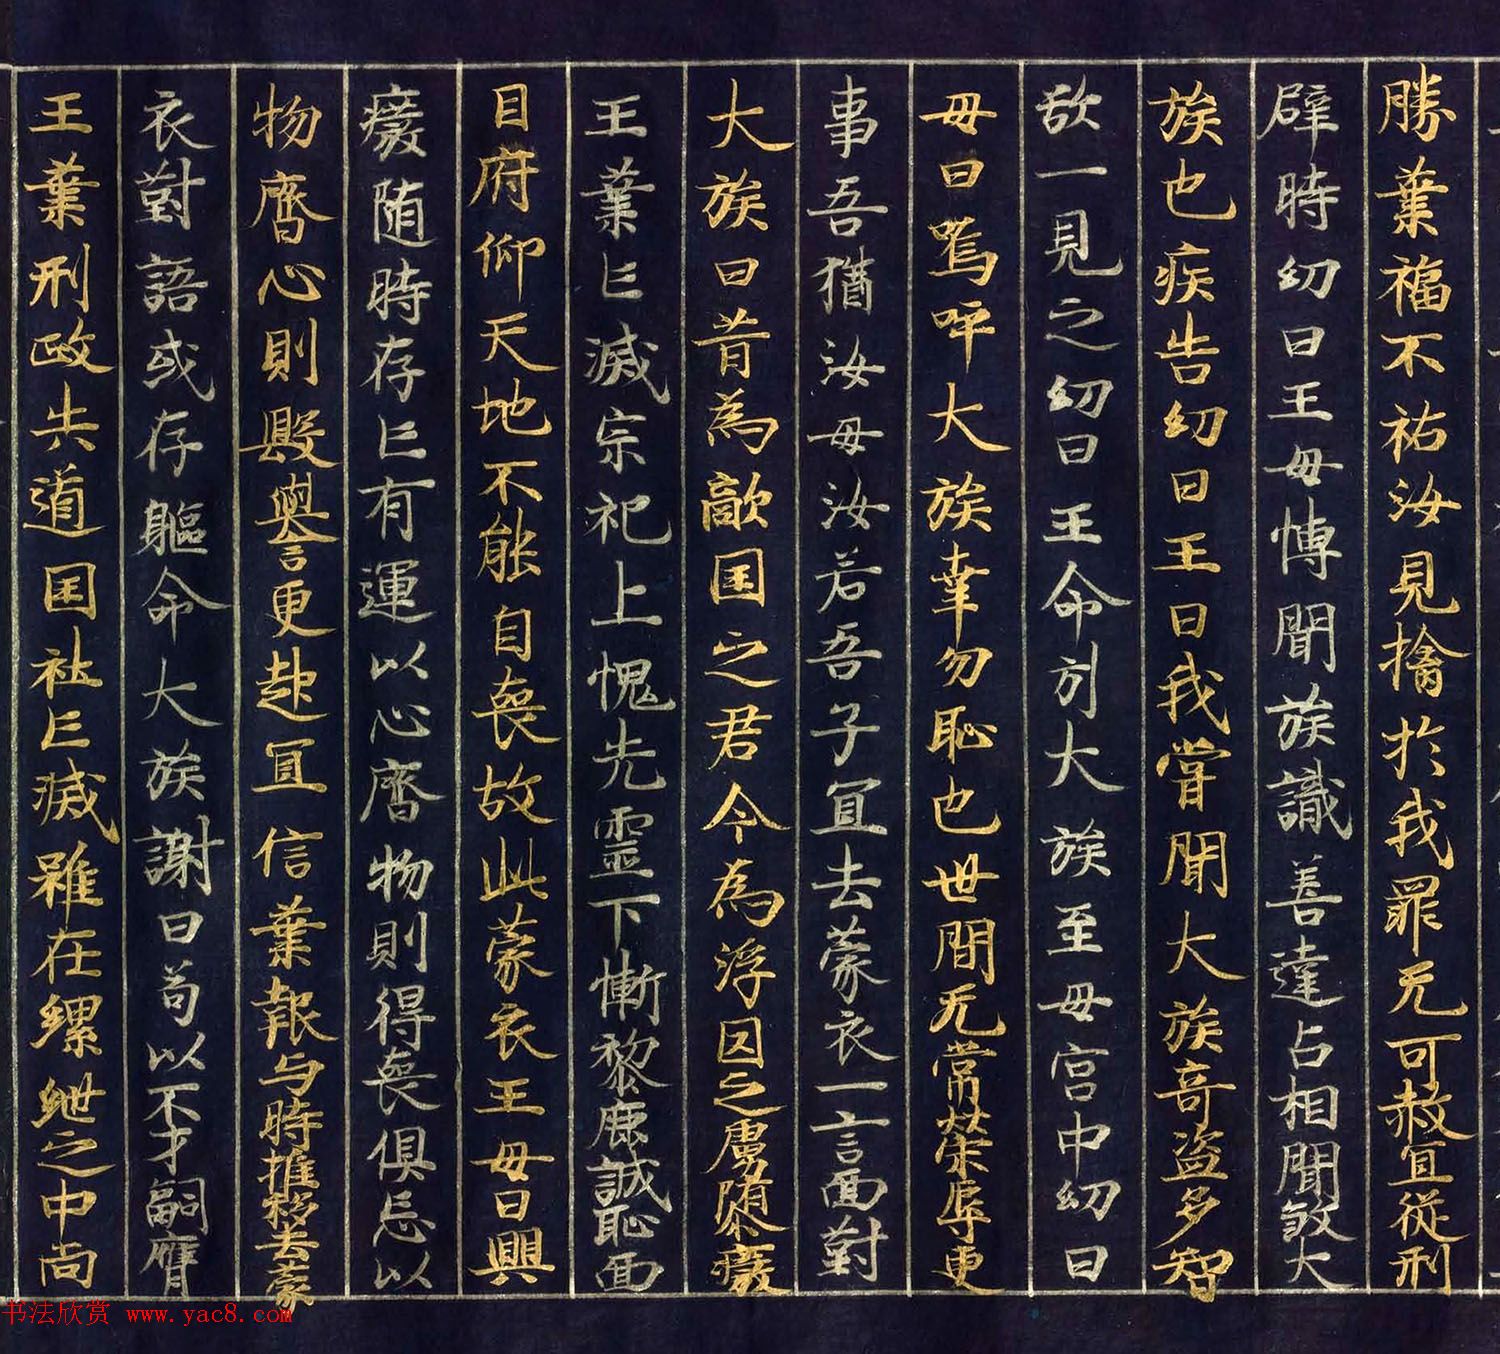 勝業福不祐汝見擒於我罪无可赦宜從刑
辟時幻日王母慱聞族識善達占相聞敦大
族也疾告幻日王曰我甞聞大族奇盗多智
欲一見之幻日王命引大族至母宮中幻日
母曰嗚呼大族幸勿恥也世間无常荣辱更
事吾猶汝母汝若吾子宜去蒙衣一言面對
大族曰昔為敵国之君今為浮囚之虜隳癈
王業亡滅宗祀上愧先靈下慚黎庶誠恥面
目府仰天地不能自喪故此蒙衣王母曰興
癈随時存亡有運以心膺物則得喪俱忘以
物膺心則毀譽更赴宜信業報与時推移去蒙
衣對語或存軀命大族謝曰苟以不才嗣膺
王業刑政失道国祉亡滅雖在縲紲之中尚
书法欣赏 www.yac8.com